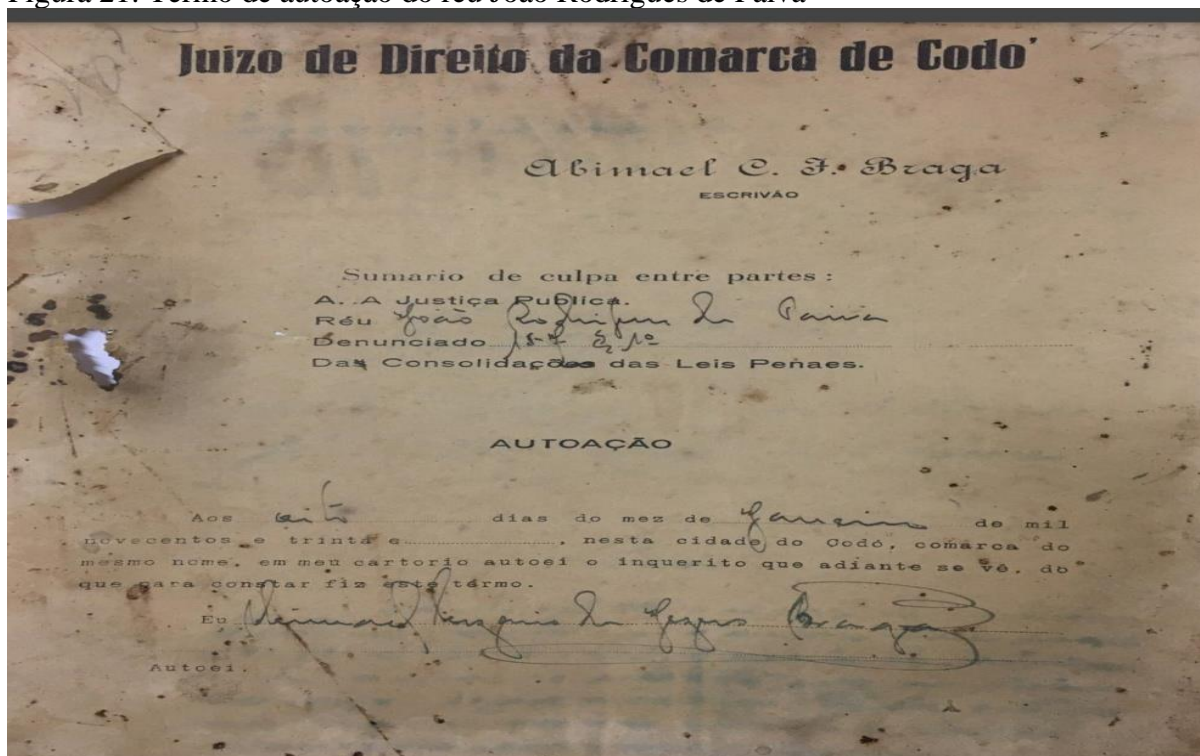 Figura 21: Termo de autoação do réu João Rodrigues de Paiva
Juizo de Direito da Comarca de Codo'
Abimael C. F. Braga
ESCRIVÃO
Sumario de culpa entre partes:
A. A Justiça Publica.
Réu João Rodrigues de Paiva
Denunciado 157 § 1º
Das Consolidações das Leis Penaes.
AUTOAÇÃO
Aos oito dias do mez de Janeiro de mil
novecentos e trinta e , nesta cidade do Codó, comarca do
mesmo nome, em meu cartorio autoei o inquerito que adiante se vê, do
que para constar fiz este térmo.
Eu de Braga
Autoei.